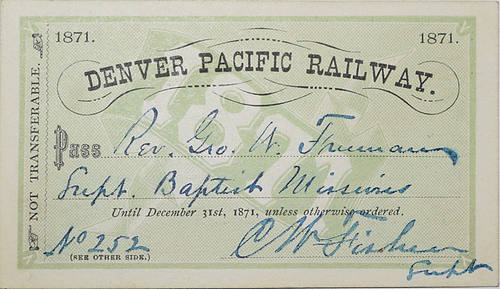 1871. 1871.
DENVER PACIFIC RAILWAY.
NOT TRANSFERABLE.
Pass Rev. Geo. W. Freeman
Supt. Baptist Missions
Until December 31st, 1871, unless otherwise ordered.
No 252 C W Fisher
(SEE OTHER SIDE.) Supt
1871